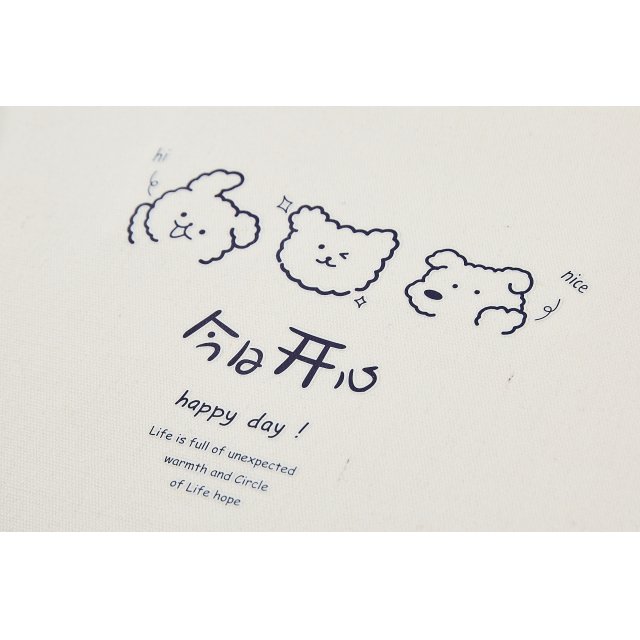 hi
nice
今日开心
happy day !
Life is full of unexpected
warmth and Circle
of Life hope